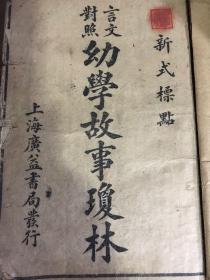 新式標點
言文
對照
幼學故事瓊林
上海廣益書局發行